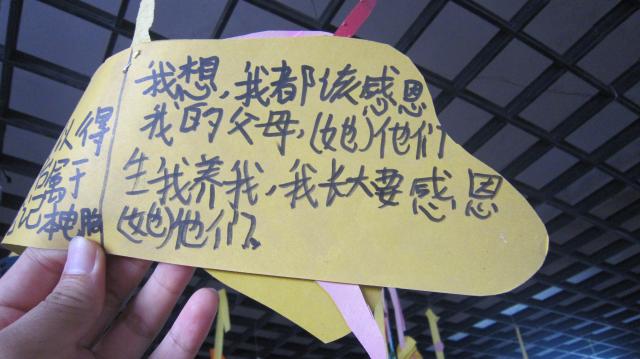 我想,我都该感恩
我的父母,(她)他们
生我养我,我长大要感恩
(她)他们。
以得
属于
记本电脑